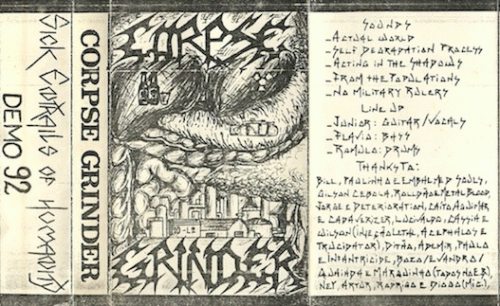 Sick Entrails of Humanity
DEMO 92
CORPSE GRINDER
CORPSE
GRINDER
SOUNDS
- ACTUAL WORLD
- SELF DEGRADATION PROCESS
- ACTING IN THE SHADOWS
- FROM THE POPULATIONS
- NO MILITARY RULERS
LINE UP
- JUNIOR: GUITAR/VOCALS
- FLAVIO: BASS
- ROMULO: DRUMS
THANKS TO:
BILL, PAULINHO E EMBALMED SOULS,
GILSON CEBOLA, ROLLDÃO E METAL BLOOD,
JORGE E DETERIORATION, CAITO, AGUIMAR
E CADAVERIZER, LUCIVALDO, CASSIA E
WILSON (INJEÇÃO LETAL), ACEPHALOS E
TRUCIDATOR), DITÃO, ADEMIR, PAULO
E INFANTRICIDE, BOZO/EVANDRO/
E MARQUINHO
NEY, ARTUR, RODRIGO E DIOGO (M.G.),